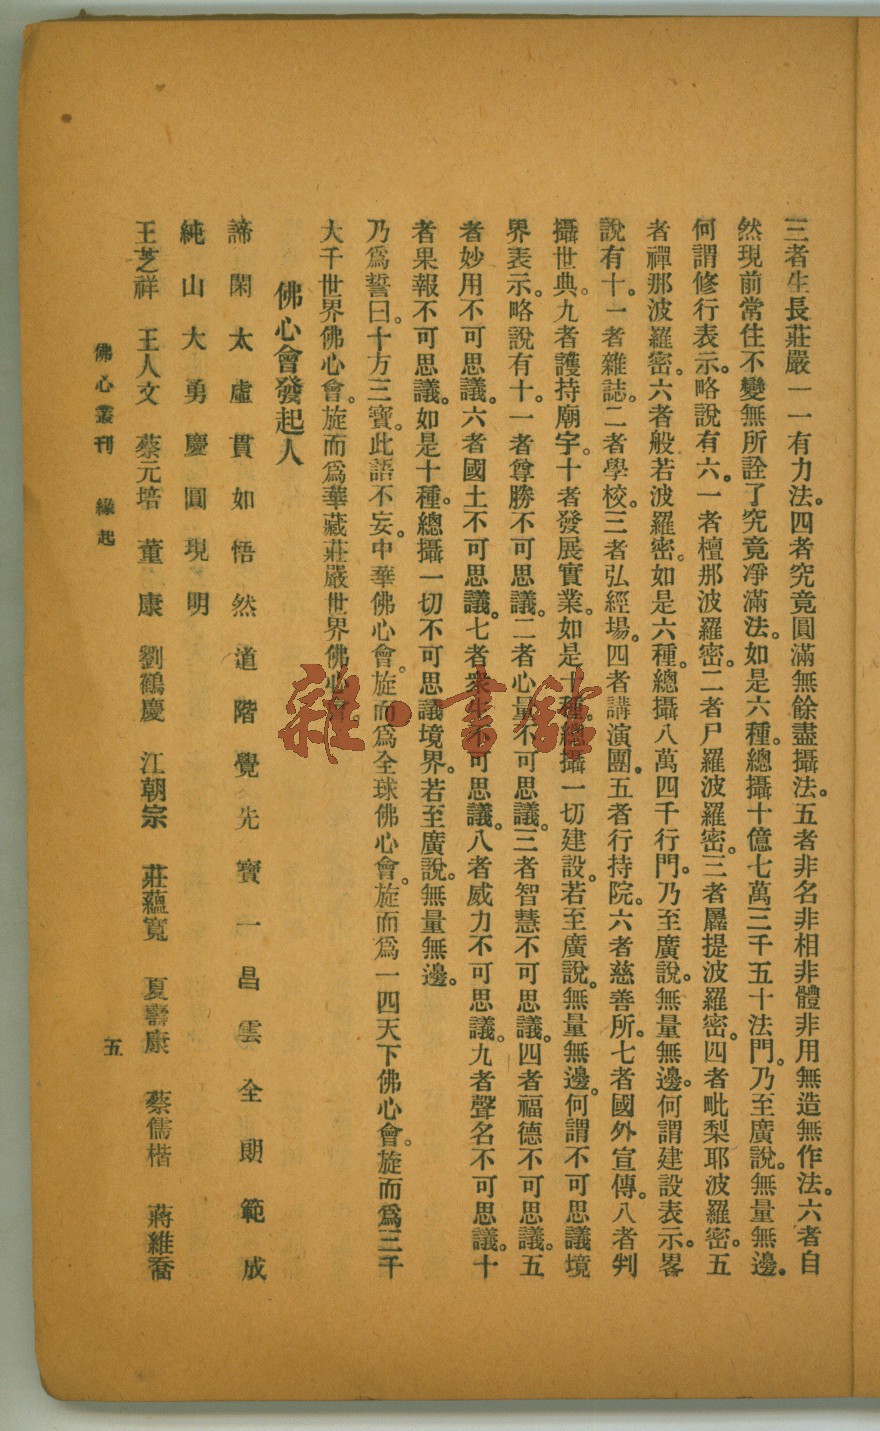 三者生長莊嚴一一有力法。四者究竟圓滿無餘盡攝法。五者非名非相非體非用無造無作法。六者自
然現前常住不變無所詮了究竟凈滿法。如是六種。總攝十億七萬三千五十法門。乃至廣說。無量無邊。
何謂修行表示。略說有六。一者檀那波羅密。二者尸羅波羅密。三者羼提波羅密。四者毗梨耶波羅密。五
者禪那波羅密。六者般若波羅密。如是六種。總攝八萬四千行門。乃至廣說。無量無邊。何謂建設表示。畧
說有十。一者雜誌。二者學校。三者弘經場。四者講演團。五者行持院。六者慈善所。七者國外宣傳。八者判
攝世典。九者護持廟宇。十者發展實業。如是十種。總攝一切建設。若至廣說。無量無邊。何謂不可思議境
界表示。略說有十。一者尊勝不可思議。二者心量不可思議。三者智慧不可思議。四者福德不可思議。五
者妙用不可思議。六者國土不可思議。七者衆生不可思議。八者威力不可思議。九者聲名不可思議。十
者果報不可思議。如是十種。總攝一切不可思議境界。若至廣說。無量無邊。
乃爲誓曰。十方三寶。此語不妄。中華佛心會。旋而爲全球佛心會。旋而爲一四天下佛心會。旋而爲三千
大千世界佛心會。旋而爲華藏莊嚴世界佛心會。
佛心會發起人
諦閑 太虛 貫如 悟然 道階 覺先 寶一 昌雲 全朗 範成
純山 大勇 慶圓 現明
王芝祥 王人文 蔡元培 董康 劉鶴慶 江朝宗 莊蘊寬 夏壽康 蔡儒楷 蔣維喬
佛心叢刊 緣起 五
雜·書館